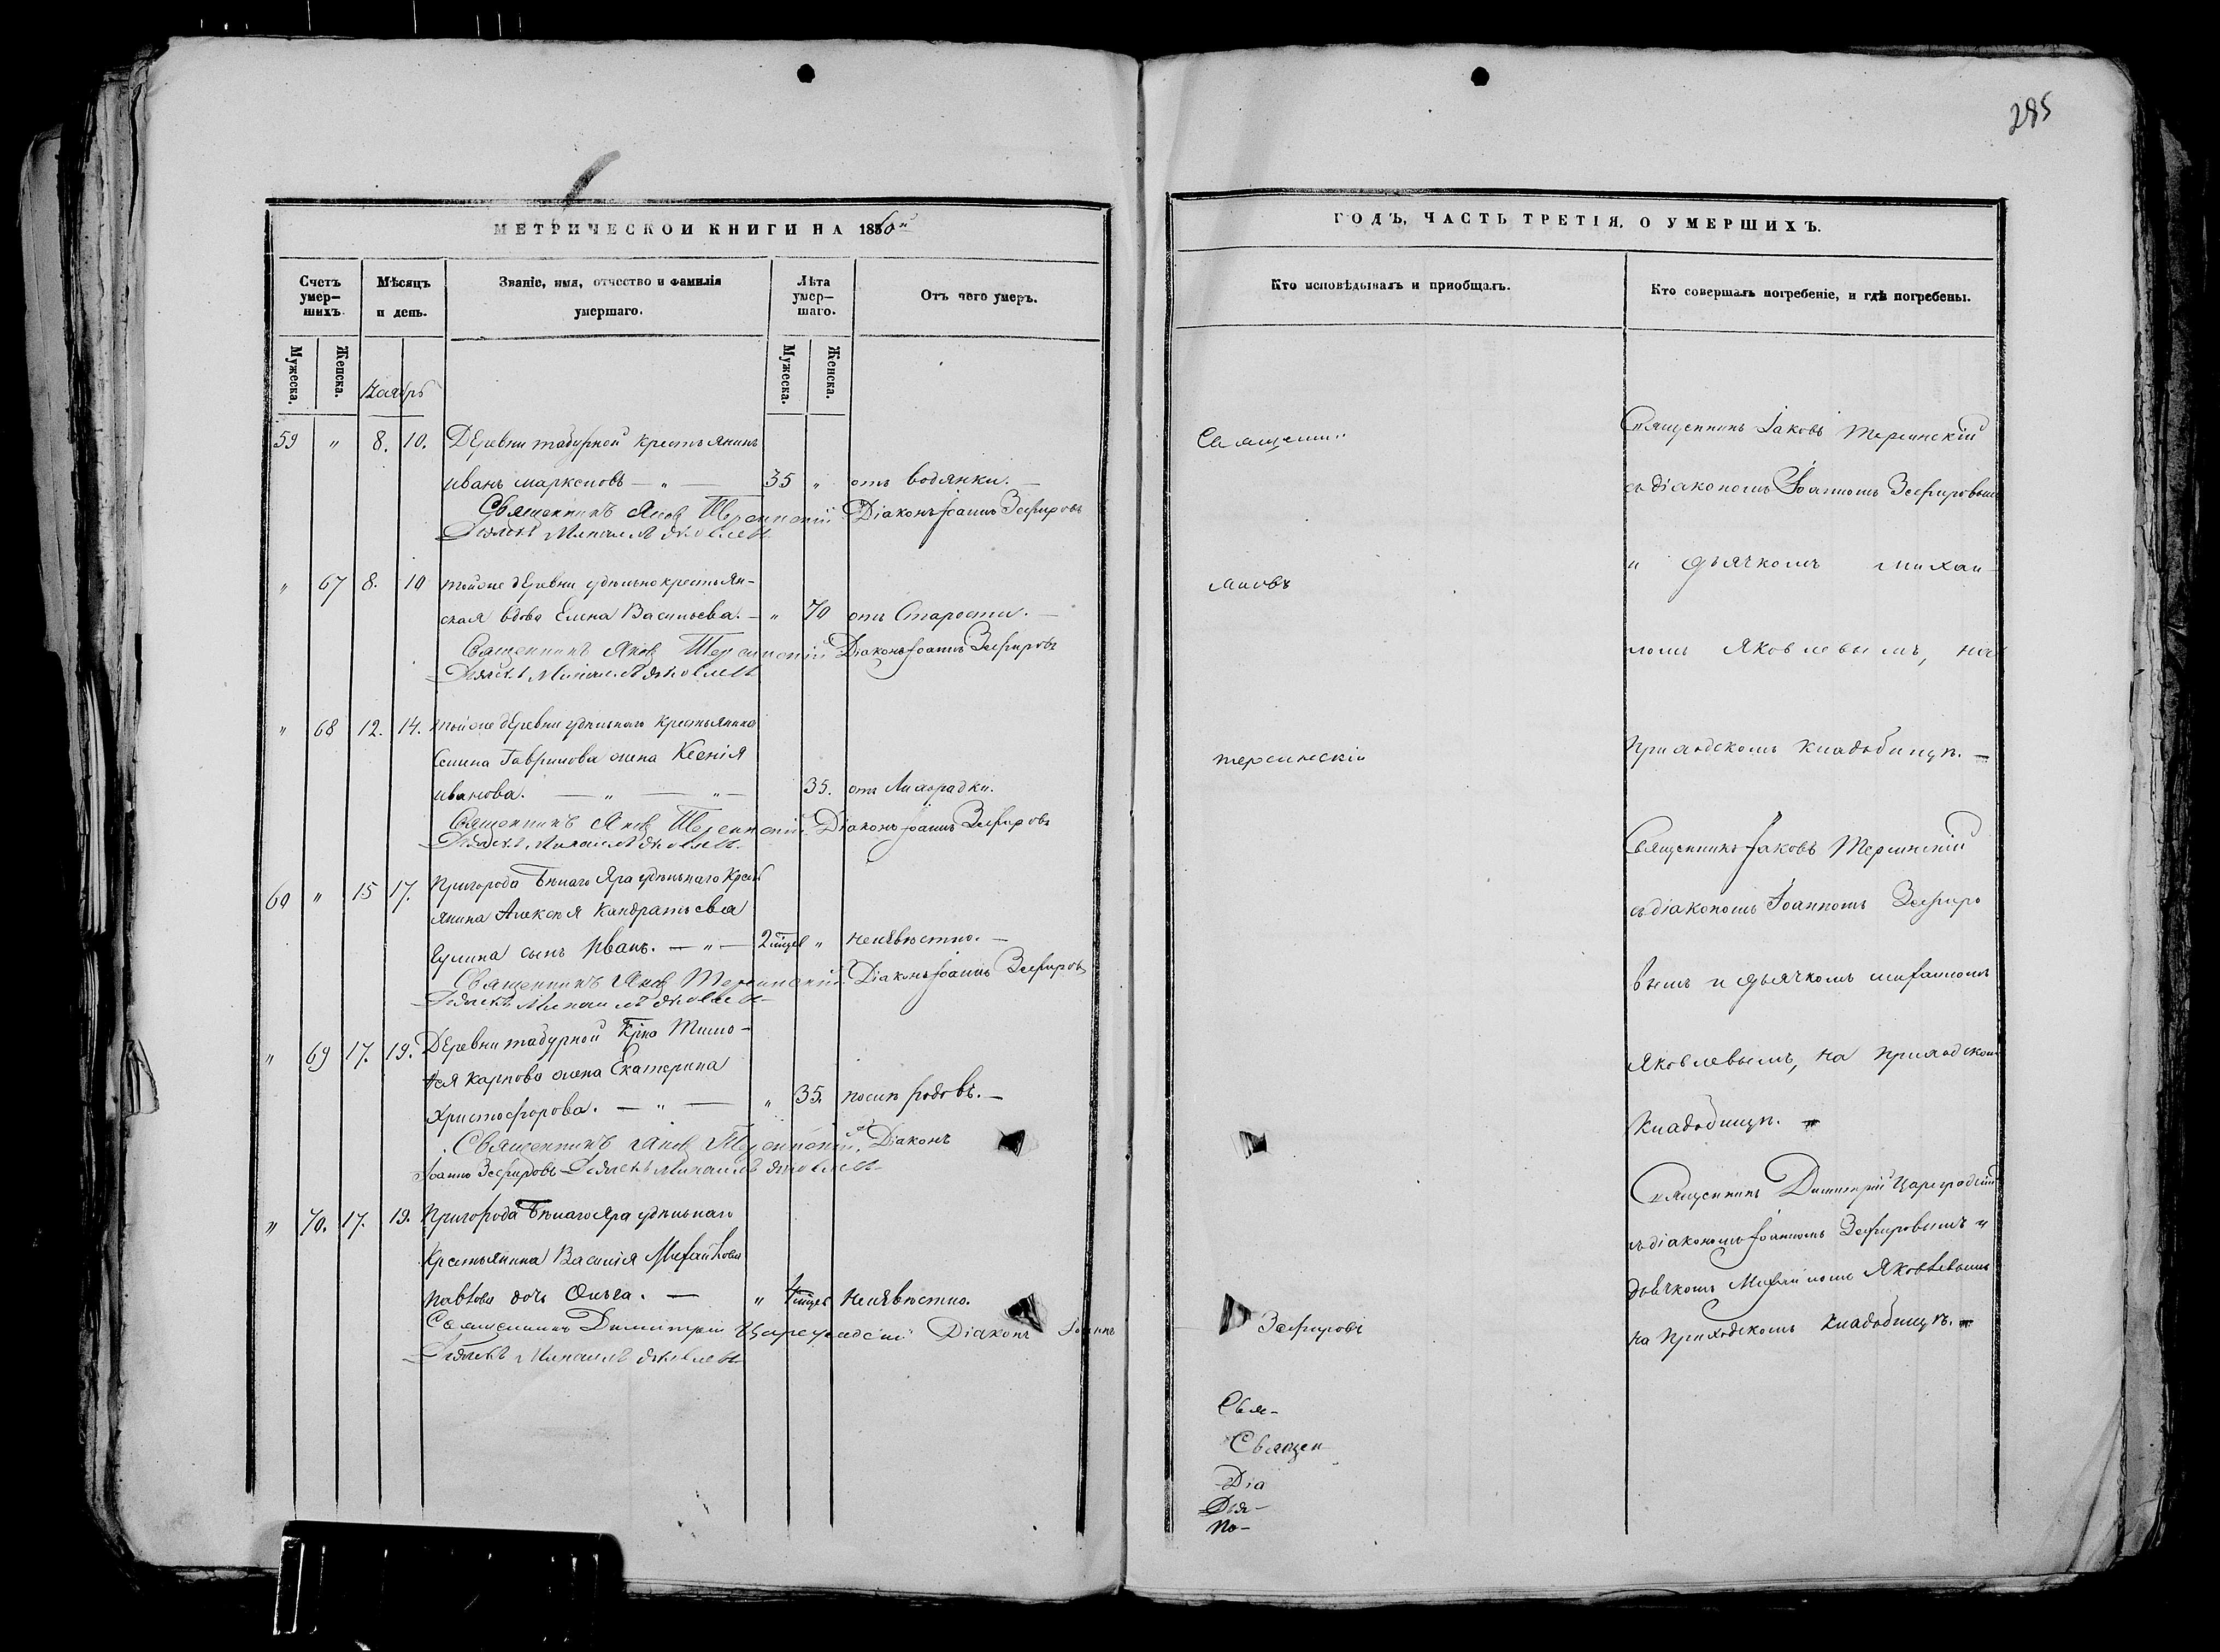 285
МЕТРИЧЕСКОЙ КНИГИ НА 1860й
Счетъ умер-шихъ.
Мѣсяцъ и день.
Званіе, имя, отчество и фамилія умершаго.
Лѣта умер-шаго.
Отъ чего умеръ.
Мужеска.
Женска.
Мужеска.
Женска.
Ноябрь
59 " 8. 10. Деревни табурной крестьянинъ
иванъ марксповъ — " — 35 " отъ водянки. —
Священникъ Яковъ Терсинскій Діаконъ Іоаннъ Зефировъ
Дьячекъ Михаилъ Яковлевъ
" 67 8. 10 тойже деревни удѣльнокрестьян-
ская вдова Елена Васильева. — " 70 отъ Старости. —
Священникъ Яковъ Терсинскій Діаконъ Іоаннъ Зефировъ
Дьячекъ Михаилъ Яковлевъ
" 68 12. 14. тойже деревни удѣльнаго крестьянина
Семина Гаврилова жена Ксенія
иванова. — " — " — 35. отъ Лихорадки.
Священникъ Яковъ Терсинскій Діаконъ Іоаннъ Зефировъ
Дьячекъ Михаилъ Яковлевъ
60 " 15 17. Пригорода Бѣлаго Яра удѣльнаго Крест
янина Алексѣя Кандратьева
сынъ Иванъ. — " — 2 мѣцев " неизвѣстно. —
Священникъ Яковъ Терсинскій Діаконъ Іоаннъ Зефировъ
Дьячекъ Михаилъ Яковлевъ
" 69 17. 19. Деревни табурной Кр҃на Тимо-
ѳея Карпова жена Екатерина
Христофорова. — " — " 35. послѣ родовъ. —
Священникъ Яковъ Терсинскій. Діаконъ
Іоаннъ Зефировъ Дьячекъ Михаилъ Яковлевъ
" 70. 17. 19. Пригорода Бѣлаго Яра удѣльнаго
Крестьянина Василія Михайлова
Павлова дочь Ольга. — " 4 мѣцев Неизвѣстно.
Священникъ Димитрій Цареградскій Діаконъ Іоаннъ
Дьячекъ Михаилъ Яковлевъ
ГОДЪ, ЧАСТЬ ТРЕТІЯ, О УМЕРШИХЪ.
Кто исповѣдывалъ и приобщалъ.
Кто совершалъ погребеніе, и гдѣ погребены.
Священникъ
Яковъ
терсинскій
Зефировъ
Свя-
Священ
Діа
Дья-
по-
Священникъ Іаковъ Терсинскій
съ діакономъ Іоанномъ Зефировымъ
и дьячкомъ михаи-
ломъ Яковлевымъ, на
приходскомъ кладбищѣ. —
Священникъ Іаковъ Терсинскій
съ діакономъ Іоанномъ Зефиро
вымъ и дьячкомъ михаиломъ
Яковлевымъ, на приходском
Кладбищѣ. —
Священникъ Димитрій Цареградскій
съ діакономъ Іоанномъ Зефировымъ и
дьячкомъ Михаиломъ Яковлевымъ
на приходскомъ кладбищѣ. —